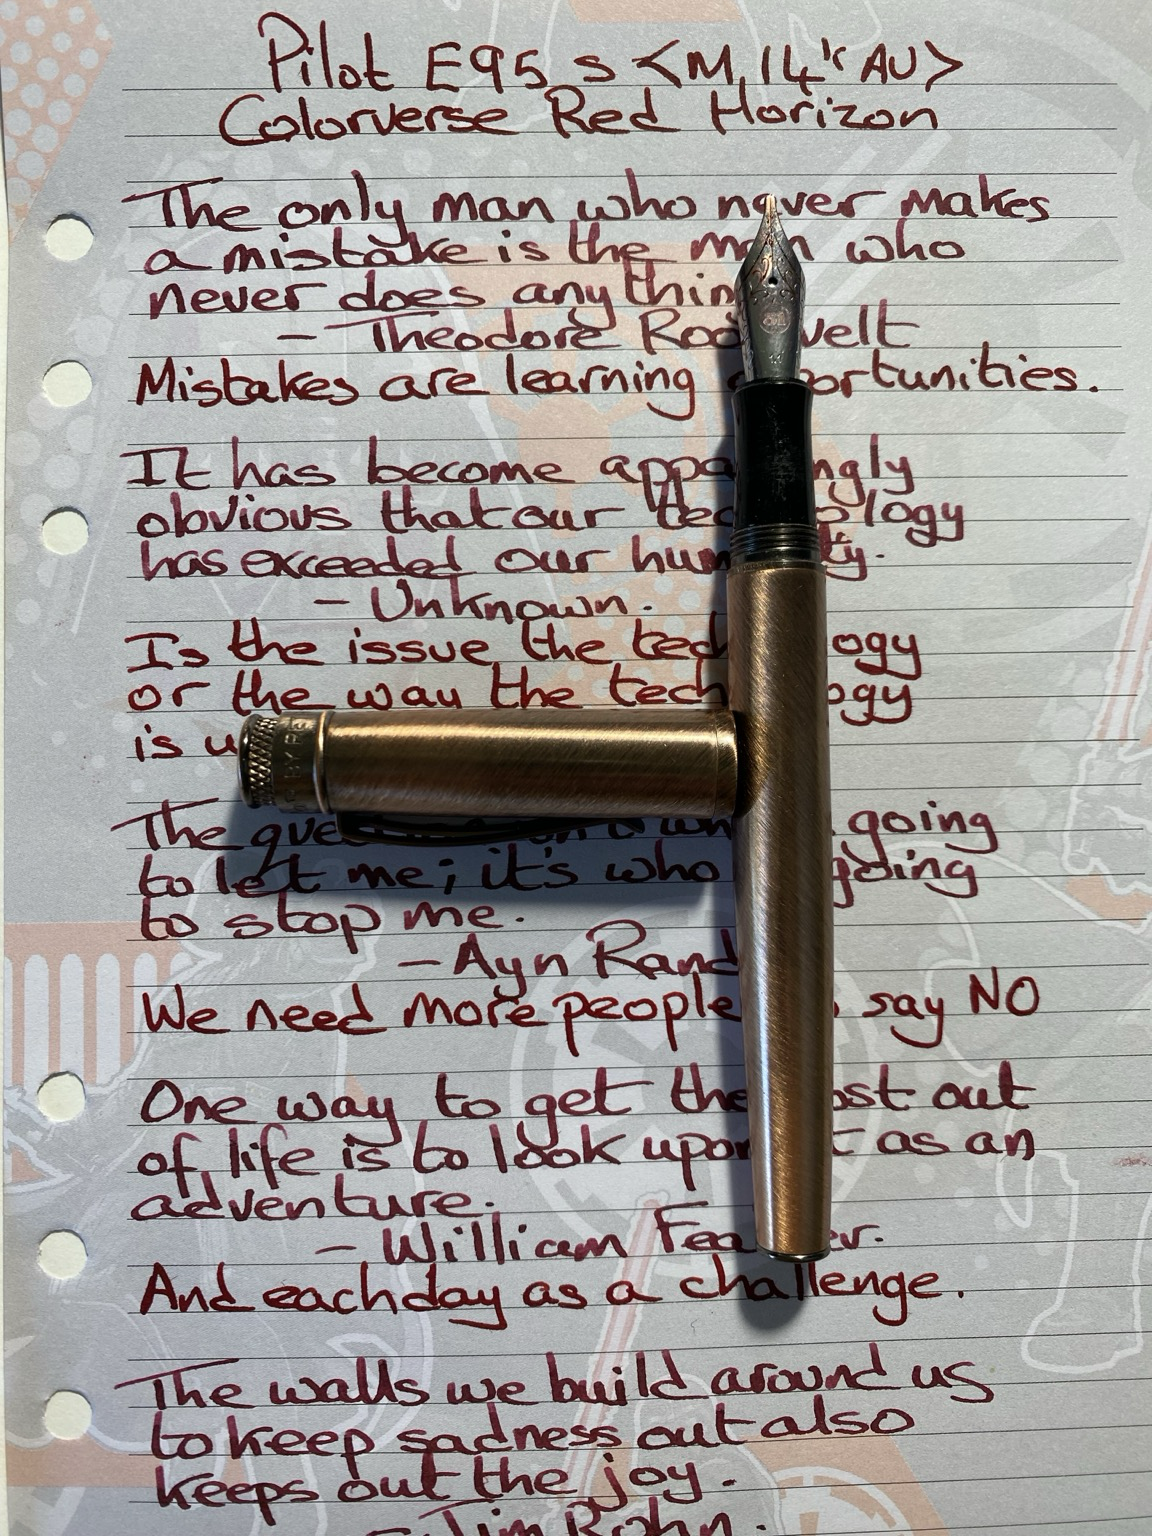 Pilot E95 s <M, 14k AU>
Colorverse Red Horizon
The only man who never makes
a mistake is the man who
never does anythin
- Theodore Roosevelt
Mistakes are learning opportunities.
It has become appallingly
obvious that our technology
has exceeded our humanity.
- Unknown.
Is the issue the technology
or the way the technology
is u
The question is who going
to let me; it's who going
to stop me.
- Ayn Rand
We need more people say NO
One way to get the most out
of life is to look upon it as an
adventure.
- William Feather.
And each day as a challenge.
The walls we build around us
to keep sadness out also
keeps out the joy.
- Jim Rohn.